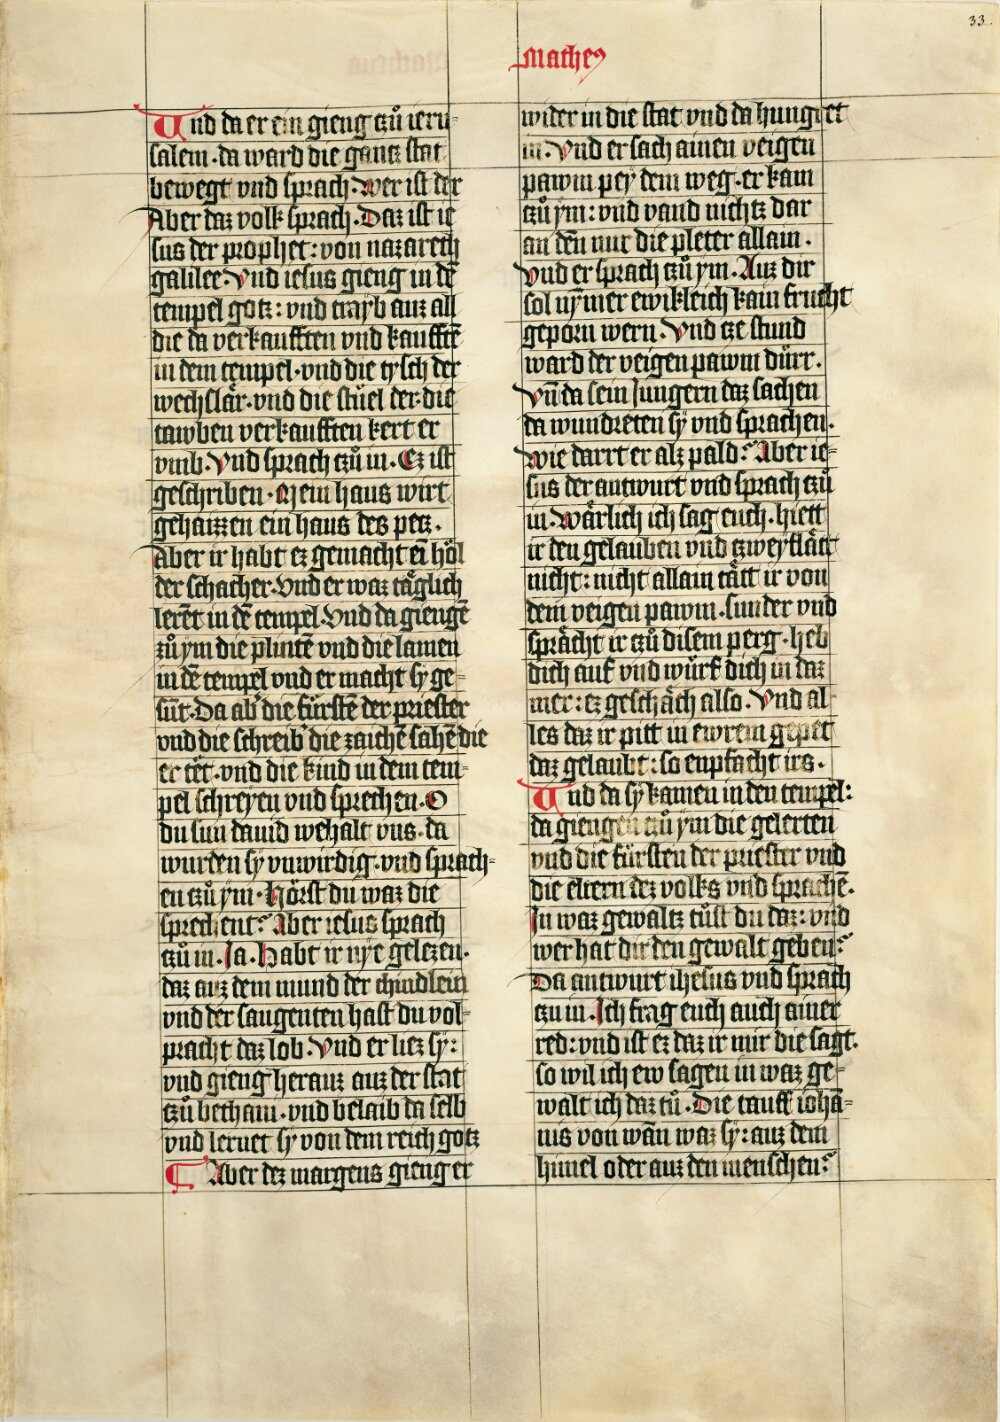 33.
Matheus
Und da er ein gieng tzů ieru-
salem. da ward die gantz stat
bewegt vnd sprach. Wer ist der
Aber daz volk sprach. Daz ist ie
sus der prophet: von nazareth
galilee. Vnd iesus gieng in dē
tempel gotz: vnd trayb auz all
die da verkaufften vnd kaufftē
in dem tempel. vnd die tysch der
wechslär. vnd die stüel der. die
tawben verkaufften kert er
vmb. Vnd sprach tzů in. Ez ist
geschriben. Mein haus wirt
gehaizzen ein haus des petz.
Aber ir habt ez gemacht eī höl
der schacher. Vnd er waz täglich
lerēt in dē tempel. Vnd da giengē
zů ym die plintē vnd die lamen
in dē tempel vnd er macht sy ge-
sūt. Da ab' die fürstē der priester
vnd die schreib' die zaichē sahē die
er tët. vnd die kind in dem tem-
pel schreyen vnd sprechen. O
du sun dauid wehalt vns. da
wurden sy vnwirdig. vnd sprach-
en tzů ym. Hörst du waz die
sprechent? Aber iesus sprach
tzů in. Ja. Habt ir nye gelezen.
daz auz dem mund der chindlein
vnd der saugenten hast du vol-
pracht daz lob. Vnd er liez sy:
vnd gieng herauz auz der stat
tzů bethani. vnd belaib da selb
vnd lernet sy von dem reich gotz
Aber dez margens gieng er
wider in die stat vnd da hungert
in. Vnd er sach ainen veigen
pawm pey dem weg. er kam
tzů ym: vnd vand nichtz dar
an dēn nur die pleter allain.
Vnd er sprach tzů ym. Auz dir
sol nȳmer ewikleich kain frucht
geporn wern. Vnd tze stund
ward der veigen pawm dürr.
Vn̄ da sein Jungern daz sachen
da wundreten sy vnd sprachen.
Wie darrt er alz pald? Aber ie-
sus der antwurt vnd sprach tzů
in. Wärlich ich sag euch. hiett
ir den gelauben vnd tzweyflätt
nicht: nicht allain tätt ir von
dem veigen pawm. sunder vnd
sprächt ir tzů disem perg. heb
dich auf vnd würf dich in daz
mer: ez geschäch also. Vnd al-
les daz ir pitt in ewrem gepet
daz gelaubt: so enpfacht irs.
Und da sy kamen in den tempel:
da giengen tzů ym die gelerten
vnd die fürsten der priester vnd
die eltern dez volks vnd sprachē.
In waz gewaltz tůst du daz: vnd
wer hat dir den gewalt geben?
Da antwurt ihesus vnd sprach
tzu in. Ich frag euch auch ainer
red: vnd ist ez daz ir mir die sagt.
so wil ich ew sagen in waz ge-
walt ich daz tů. Die tauff iohā-
nis von wān waz sy: auz dem
himel oder auz den menschen?